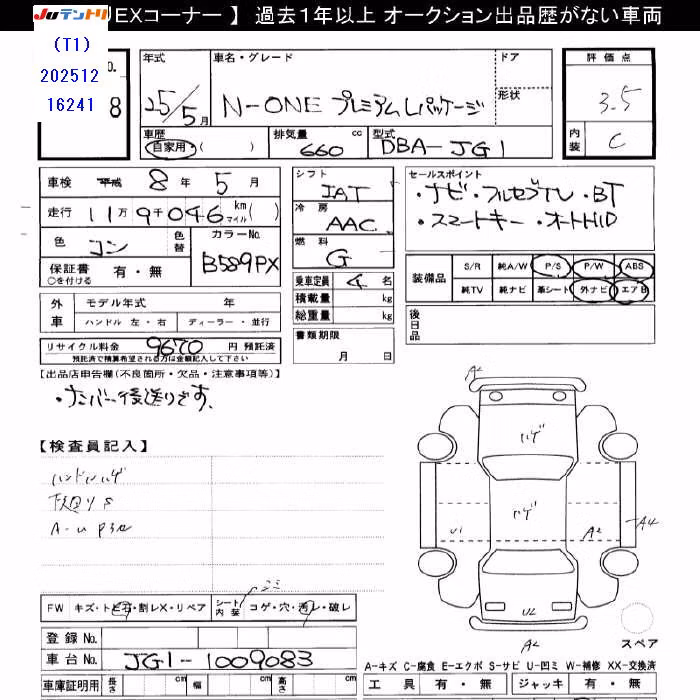 JUテントリ EXコーナー 】 過去1年以上 オークション出品歴がない車両
(T1)
202512
16241
o.
8
年式 25/5月
車名・グレード N-ONE プレミアム Lパッケージ
ドア
形状
評価点 3.5
内装 C
車歴 自家用・( )
排気量 660 cc
型式 DBA-JG1
車検 平成 8年 5月
走行 11万9千046 km マイル( )
色 コン 色替
カラーNo. B589PX
保証書 有・無
○を付ける
シフト IAT
冷房 AAC
燃料 G
乗車定員 4 名
積載量 kg
総重量 kg
書類期限
月 日
セールスポイント
・ナビ・フルセグTV・BT
・スマートキー・オートHID
装備品 S/R 純A/W P/S P/W ABS
純TV 純ナビ 革シート 外ナビ エアB
外車 モデル年式 年
ハンドル 左・右 ディーラー・並行
後日品
リサイクル料金 9670 円 預託済
預託済で精算希望される方は金額記入して下さい
【出品店申告欄(不良箇所・欠品・注意事項等)】
・ナンバー後送りです。
【検査員記入】
ハンドルハゲ
下回りS
A-U P3ケ
A2
ハゲ
ハゲ
U1
A2
A4
U2
A2
スペア
FW キズ・トビ石・割レX・リペア
シート内装 コゲ・穴・汚レ・破レ
登録No.
車台No. JG1-1009083
車庫証明用 長さ cm 幅 cm 高さ cm
A-キズ C-腐食 E-エクボ S-サビ U-凹ミ W-補修 XX-交換済
工具 有・無 ジャッキ 有・無